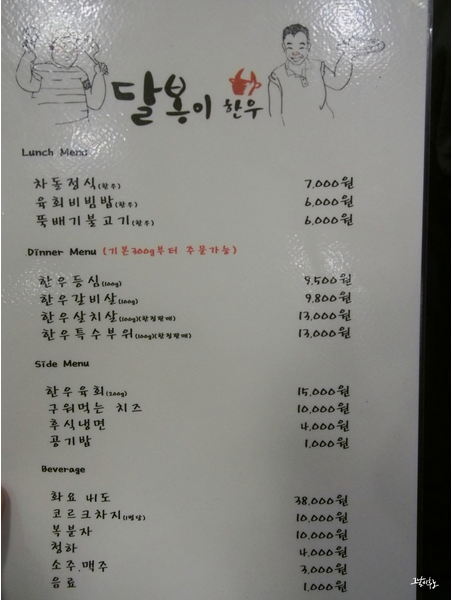 달봉이 한우
Lunch Menu
차돌정식(한우) 7,000원
육회비빔밥(한우) 6,000원
뚝배기불고기(한우) 6,000원
Dinner Menu (기본300g부터 주문가능)
한우등심(100g) 9,500원
한우갈비살(100g) 9,800원
한우살치살(100g)(한정판매) 13,000원
한우특수부위(100g)(한정판매) 13,000원
Side Menu
한우육회(200g) 15,000원
구워먹는 치즈 10,000원
후식냉면 4,000원
공기밥 1,000원
Beverage
화요 41도 38,000원
코르크차지(1병당) 10,000원
복분자 10,000원
청하 4,000원
소주.맥주 3,000원
음료 1,000원